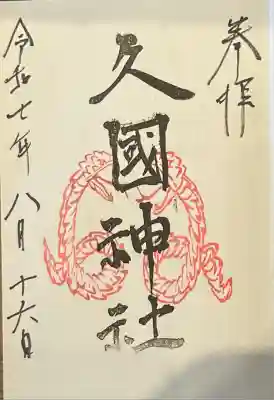 奉拝
久國神社
令和七年八月十六日